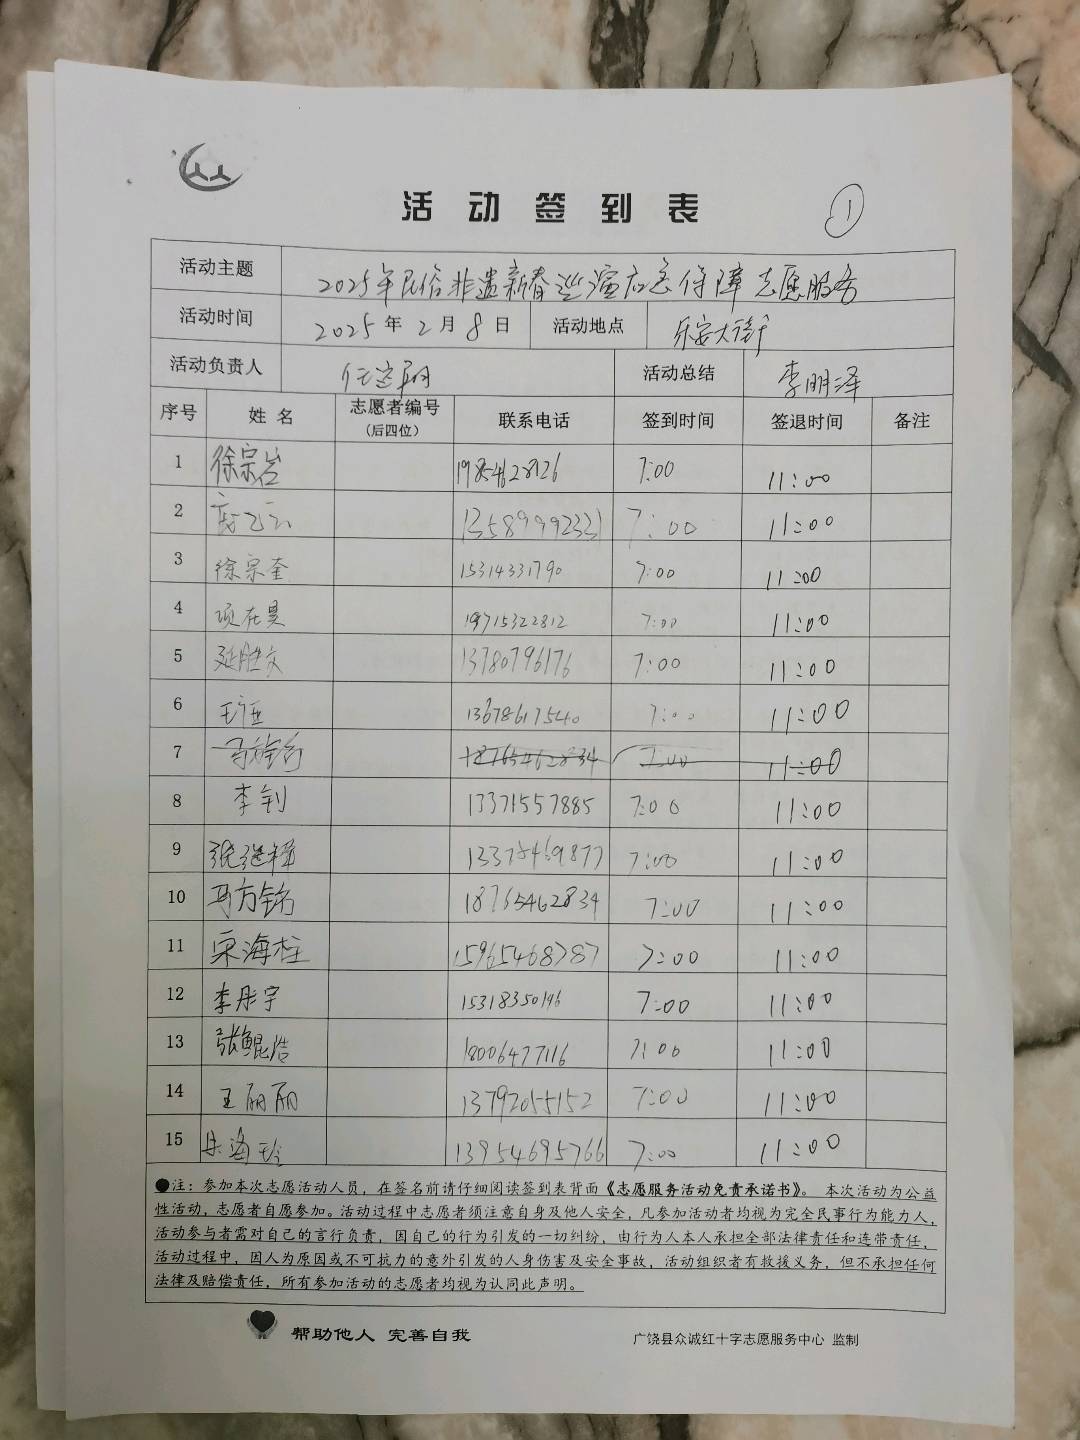 活动签到表 ①
活动主题 2025年民俗非遗新春巡演应急保障志愿服务
活动时间 2025年2月8日 活动地点 乐安大街
活动负责人 任空翔 活动总结 李明泽
序号 姓名 志愿者编号(后四位) 联系电话 签到时间 签退时间 备注
1 徐宗岩 19854628126 7:00 11:00
2 13589992331 7:00 11:00
3 徐宗奎 15314331790 7:00 11:00
4 项在昊 19715322812 7:00 11:00
5 延胜文 13780796176 7:00 11:00
6 13678617540 7:00 11:00
7 18765462834 7:00 11:00
8 李钊 13371557885 7:00 11:00
9 张继祥 13378469877 7:00 11:00
10 马方铭 18765462834 7:00 11:00
11 宋海柱 15965468787 7:00 11:00
12 李彤宇 15318350196 7:00 11:00
13 张鲲浩 18006477116 7:00 11:00
14 王丽丽 13792055152 7:00 11:00
15 13954695766 7:00 11:00
●注：参加本次志愿活动人员，在签名前请仔细阅读签到表背面《志愿服务活动免责承诺书》。本次活动为公益
性活动，志愿者自愿参加。活动过程中志愿者须注意自身及他人安全，凡参加活动者均视为完全民事行为能力人，
活动参与者需对自己的言行负责，因自己的行为引发的一切纠纷，由行为人本人承担全部法律责任和连带责任，
活动过程中，因人为原因或不可抗力的意外引发的人身伤害及安全事故，活动组织者有救援义务，但不承担任何
法律及赔偿责任，所有参加活动的志愿者均视为认同此声明。
帮助他人 完善自我 广饶县众诚红十字志愿服务中心 监制